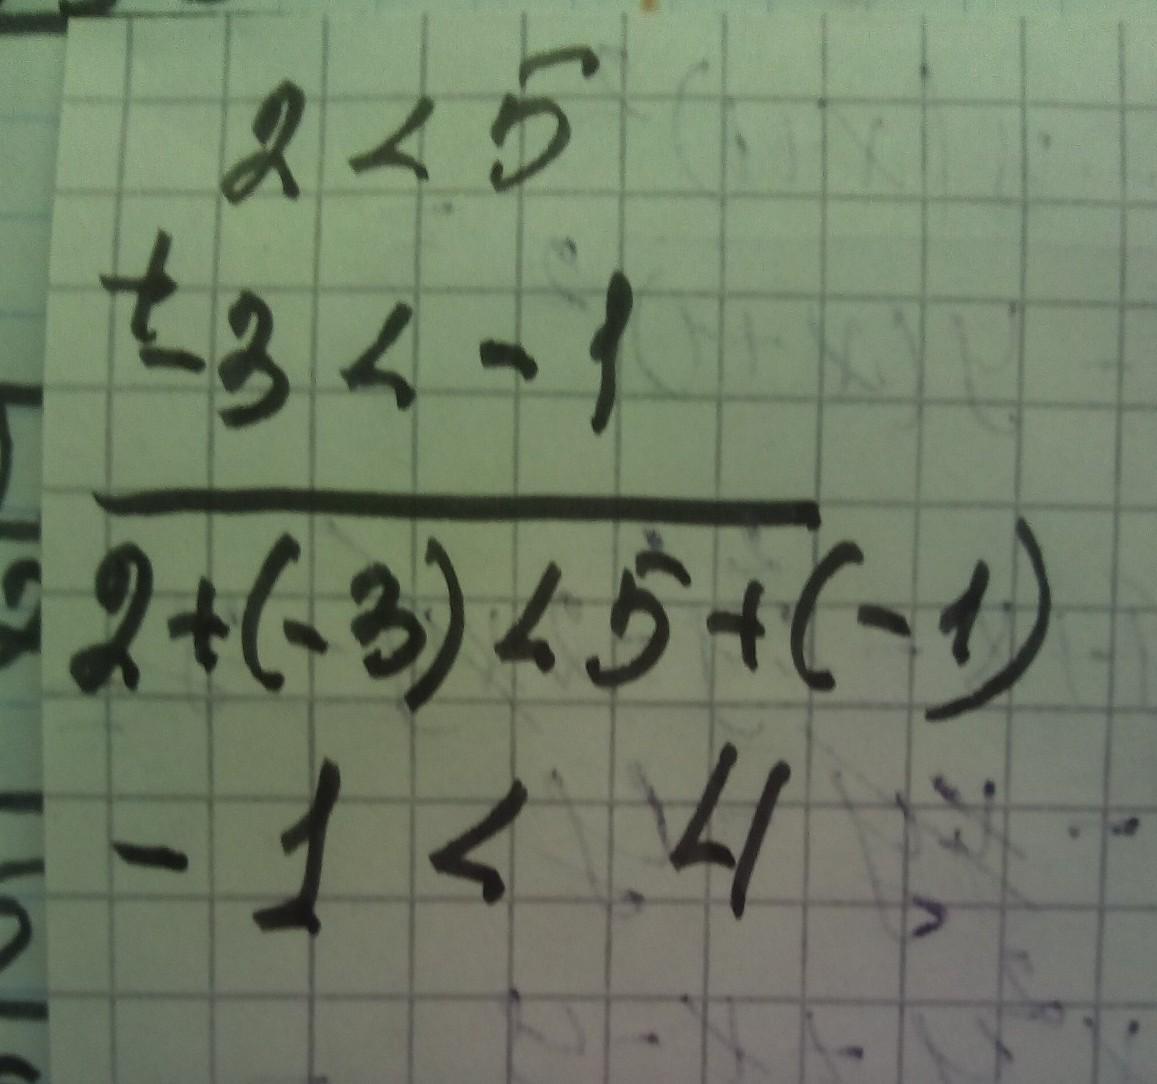 2 < 5
+
-3 < -1
2+(-3) < 5+(-1)
-1 < 4